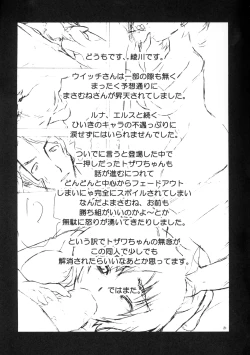 どうもです、綾川です。
ウイッチさんは一部の隙も無く
まったく予想通りに
まさむねさんが昇天されてしました。
ルナ、エルスと続く
ひいきのキャラの不遇っぷりに
涙せずにはいられませんでした。
ついでに言うと登場した中で
一押しだったトザワちゃんも
話が進むにつれて
どんどんと中心からフェードアウト
しまいにゃ完全にスポイルされてしまい
なんだよまさむね、お前も
勝ち組がいいのかよ～とか
無駄に怒りが湧いてきてしまいました。
という訳でトザワちゃんの無念が
この同人で少しでも
解消されたらいいなあとか思ってます。
ではまた。